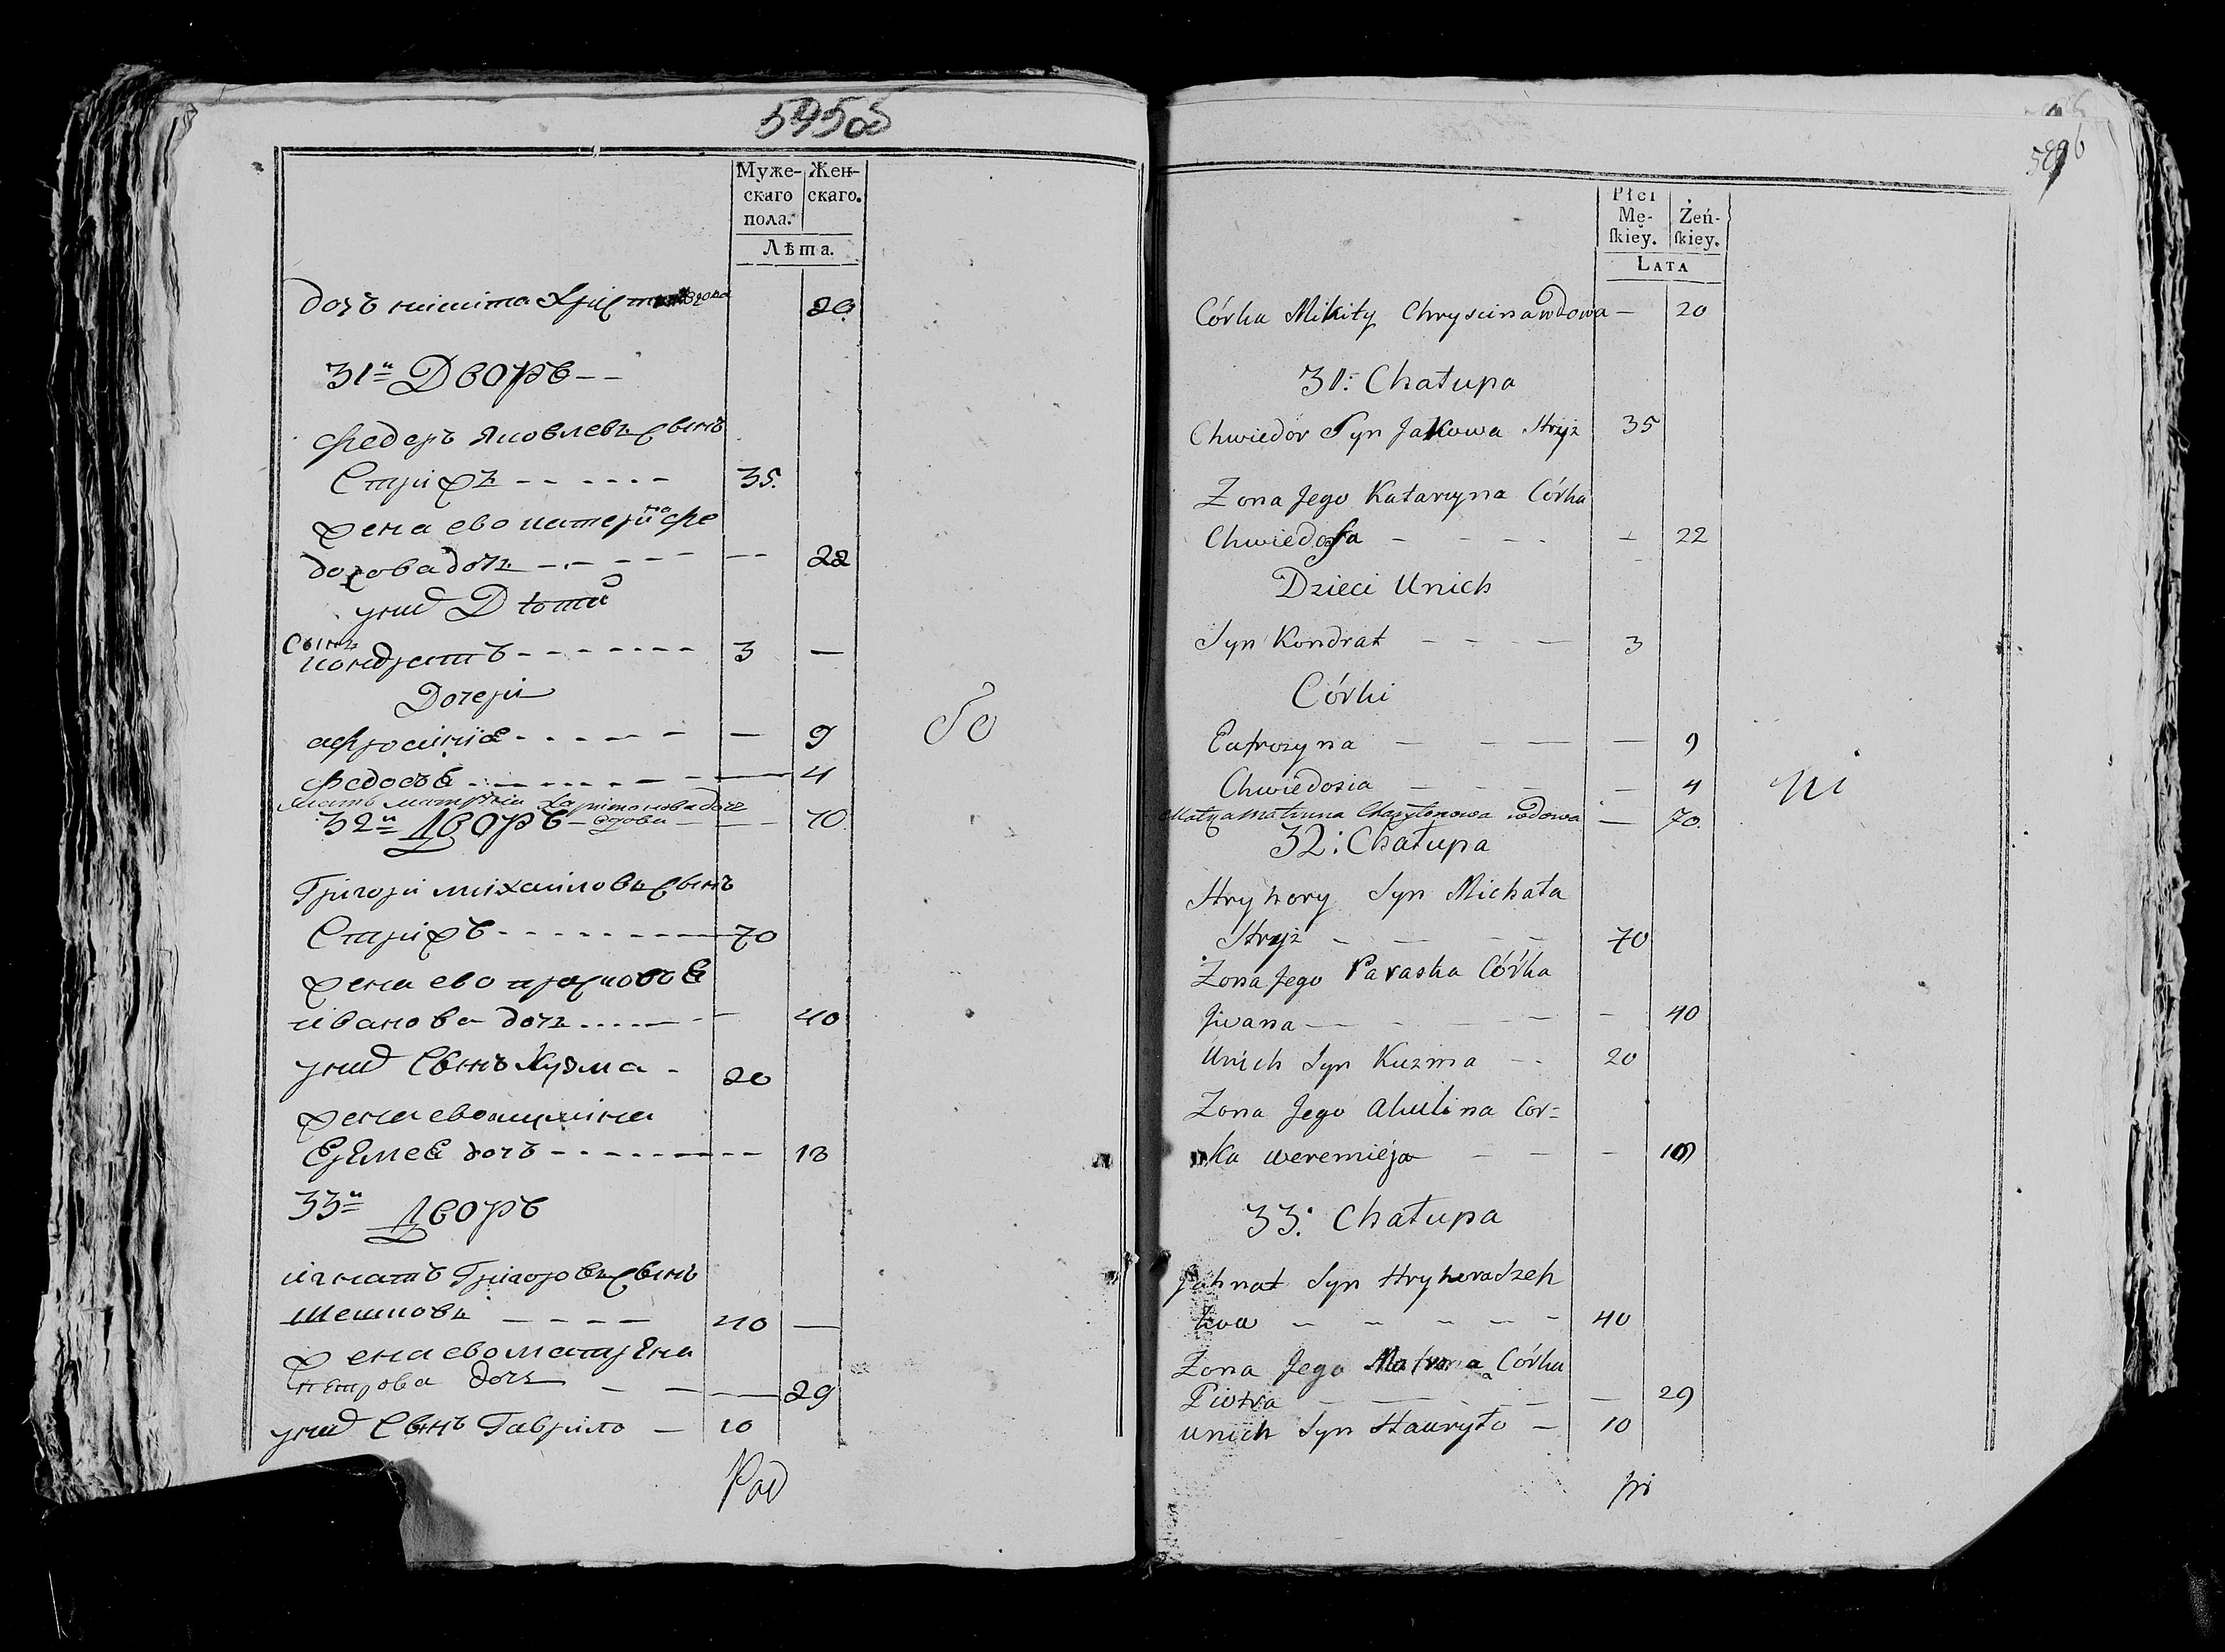 5950б
Муже- Жен-
скаго скаго.
пола.
Лѣта.
дочъ никита вдова 20
31й Дворъ
федеръ Яковлевъ сынъ
Стрижъ 35
жена ево катерина фе
дорова дочъ 22
унид Дѣти
Сынъ
кондратъ 3
Дочери
афросинія 9
федосья 4
Мать матруна Харитонова дочъ
32й Дворъ вдова 70
Григори михаиловъ сынъ
Стрижъ 70
жена ево
иванова дочъ 40
унид Сынъ Кузма 20
жена ево акулина
Еремея дочъ 18
33й Дворъ
игнатъ Григоровъ сынъ
40
жена ево матрена
петрова дочъ 29
унид Сынъ Гаврило 10
Płci
Mę- Żeń-
ſkiey. ſkiey.
LATA
Córka Mikity Chryscina wdowa 20
31: Chałupa
Chwiedór Syn Jakowa Stryż 35
Zona Jego Katarzyna Córka
Chwiedora 22
Dzieci Unich
Syn Kondrat 3
Córki
Eufrozyna 9
Chwiedosia 4
Matka Matruna Charytonowa wdowa 70
32: Chałupa
Hryhory Syn Michała
Stryż 70
Zona Jego Paraska Córka
Jwana 40
Unich Syn Kuzma 20
Zona Jego Akulina Cor=
ka weremieja 18
33: Chałupa
Jahnat Syn Hryhora
40
Zona Jego Matrona Córka
Piotra 29
unich Syn Hauryło 10